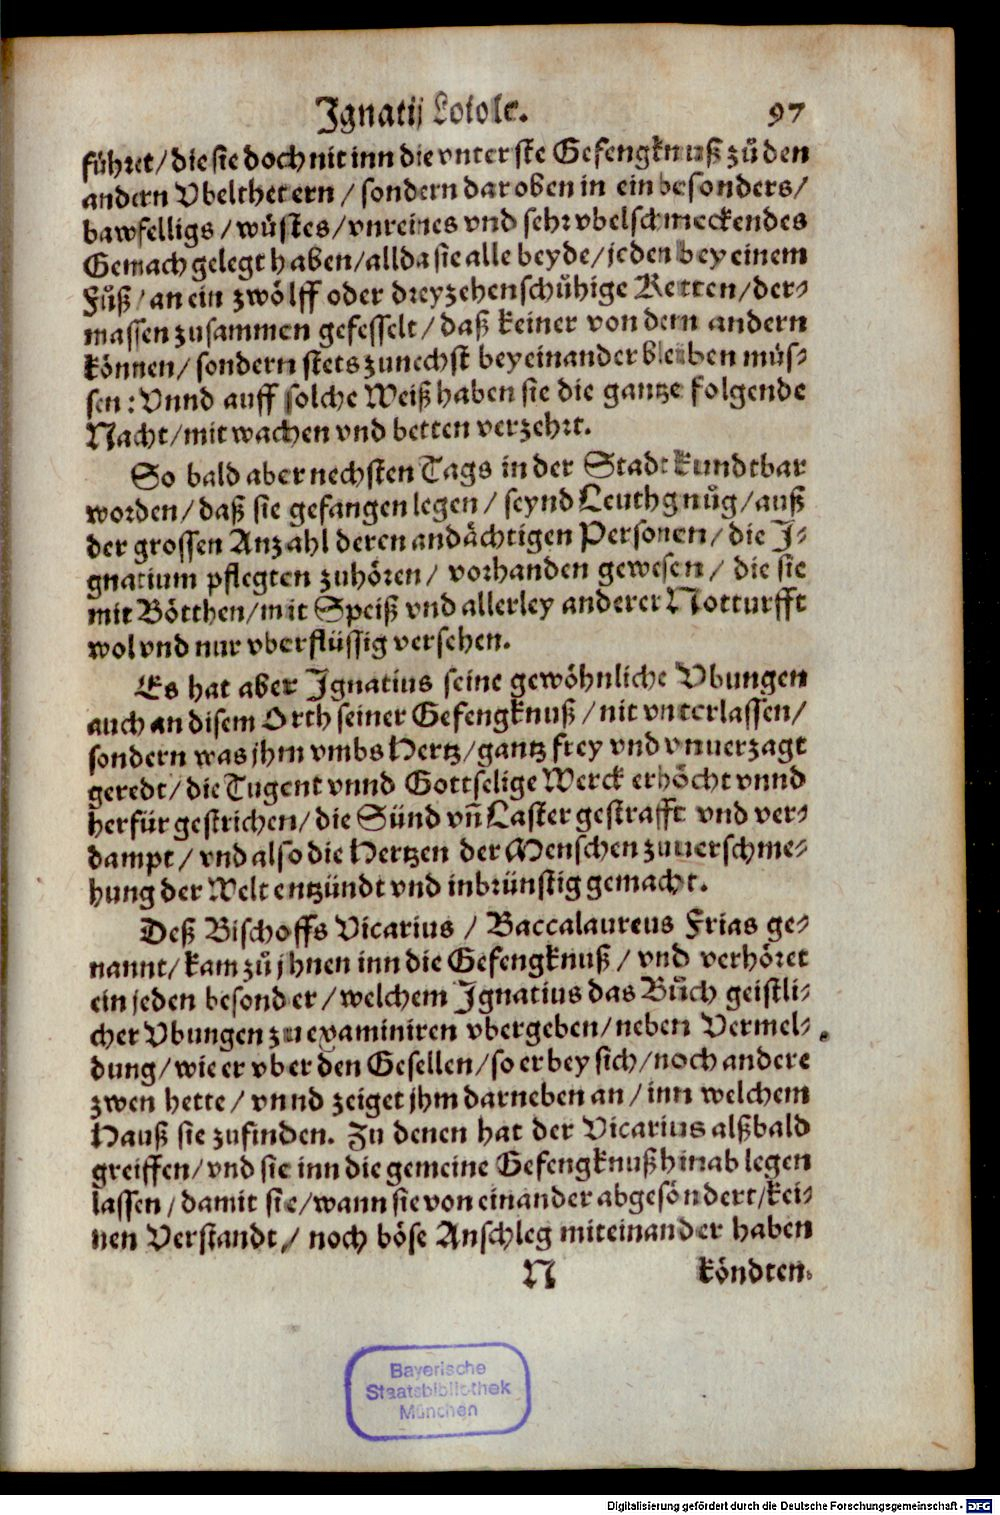 Ignatij Loiole. 97
führet/die sie doch nit inn die vnterste Gefengknuß zů den
andern Vbelthetern/sondern daroben in ein besonders/
bawfelligs/wüstes/vnreines vnd sehr vbelschmeckendes
Gemach gelegt haben/allda sie alle beyde/jeden bey einem
Fůß/an ein zwölff oder dreyzehenschůhige Ketten/der-
massen zusammen gefesselt/daß keiner von dem andern
können/sondern stets zunechst beyeinander bleiben müs-
sen: Vnnd auff solche Weiß haben sie die gantze folgende
Nacht/mit wachen vnd betten verzehrt.
So bald aber nechsten Tags in der Stadt kundtbar
worden/daß sie gefangen legen/seynd Leuth gnůg/auß
der grossen Anzahl deren andächtigen Personen/die I-
gnatium pflegten zuhören/vorhanden gewesen/die sie
mit Bötthen/mit Speiß vnd allerley anderer Notturfft
wol vnd nur vberflüssig versehen.
Es hat aber Ignatius seine gewöhnliche Vbungen
auch an disem Orth seiner Gefengknuß/nit vnterlassen/
sondern was jhm vmbs Hertz/gantz frey vnd vnuerzagt
geredt/die Tugent vnnd Gottselige Werck erhöcht vnnd
herfür gestrichen/die Sünd vñ Laster gestrafft vnd ver-
dampt/vnd also die Hertzen der Menschen zuuerschme-
hung der Welt entzündt vnd inbrünstig gemacht.
Deß Bischoffs Vicarius/Baccalaureus Frias ge-
nannt/kam zů jhnen inn die Gefengknuß/vnd verhöret
ein jeden besonder/welchem Ignatius das Bůch geistli-
cher Vbungen zu examiniren vbergeben/neben Vermel-
dung/wie er vber den Gesellen/so er bey sich/noch andere
zwen hette/vnnd zeiget jhm darneben an/inn welchem
Hauß sie zufinden. Zu denen hat der Vicarius alßbald
greiffen/vnd sie inn die gemeine Gefengknuß hinab legen
lassen/damit sie/wann sie von einander abgesöndert/kei-
nen Verstandt/noch böse Anschleg miteinander haben
N köndten.
Bayerische
Staatsbibliothek
München
Digitalisierung gefördert durch die Deutsche Forschungsgemeinschaft - DFG